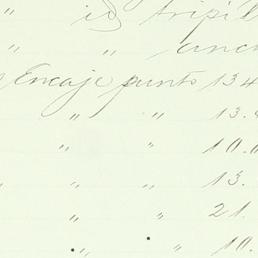 " id tripl
" " anch
Encaje punto 134
" " 13.
" " 10.0
" " 13.
" " 21.
" " 10.